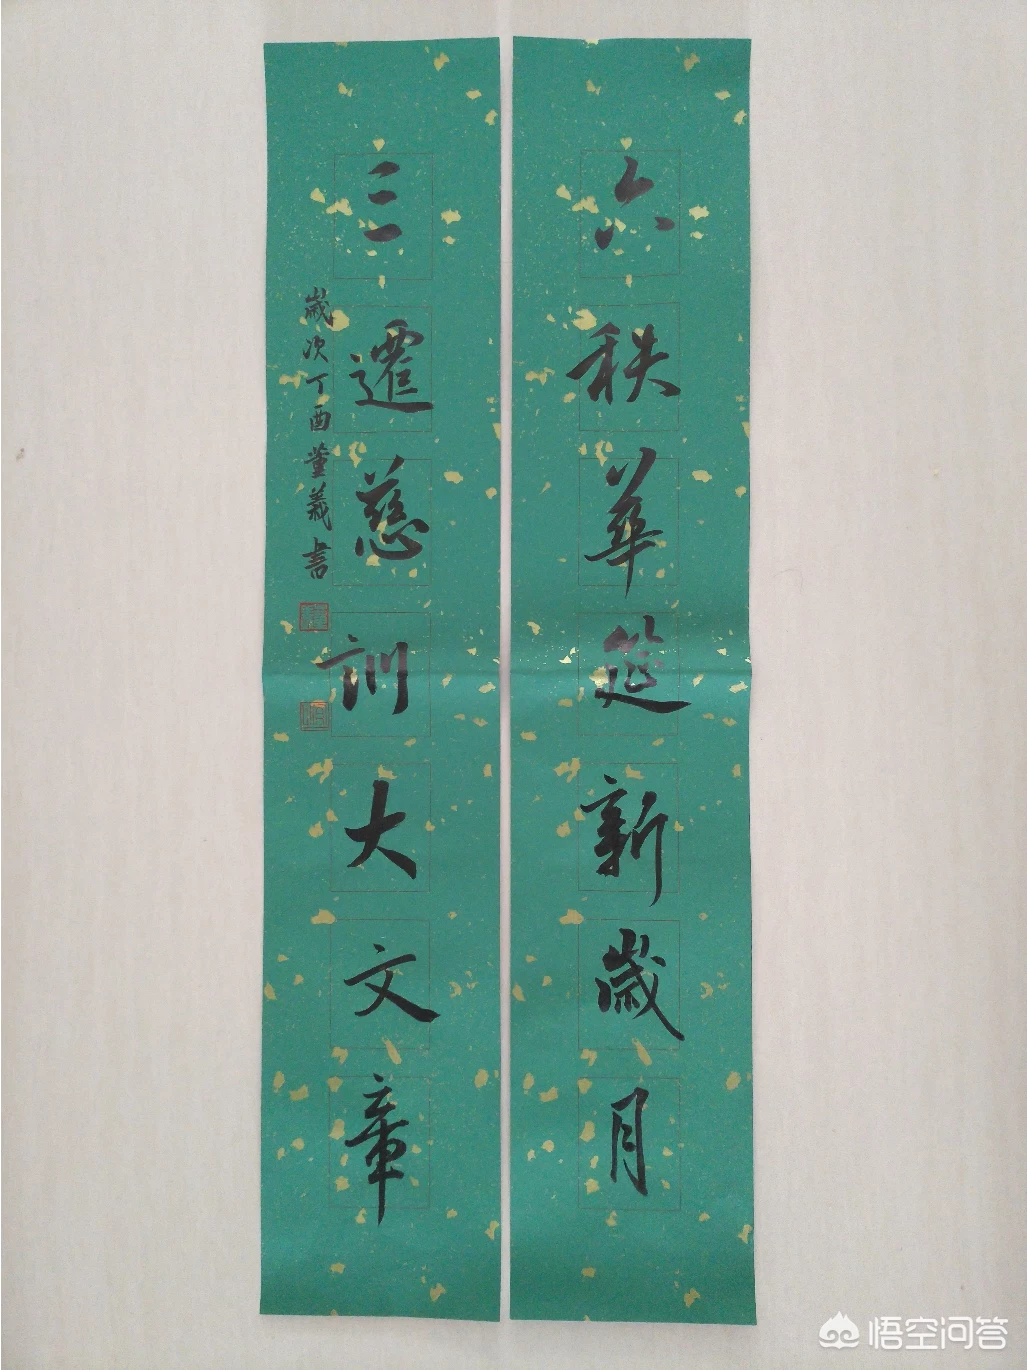 六秩華筵新歲月
三遷慈訓大文章
歲次丁酉董義書
悟空问答